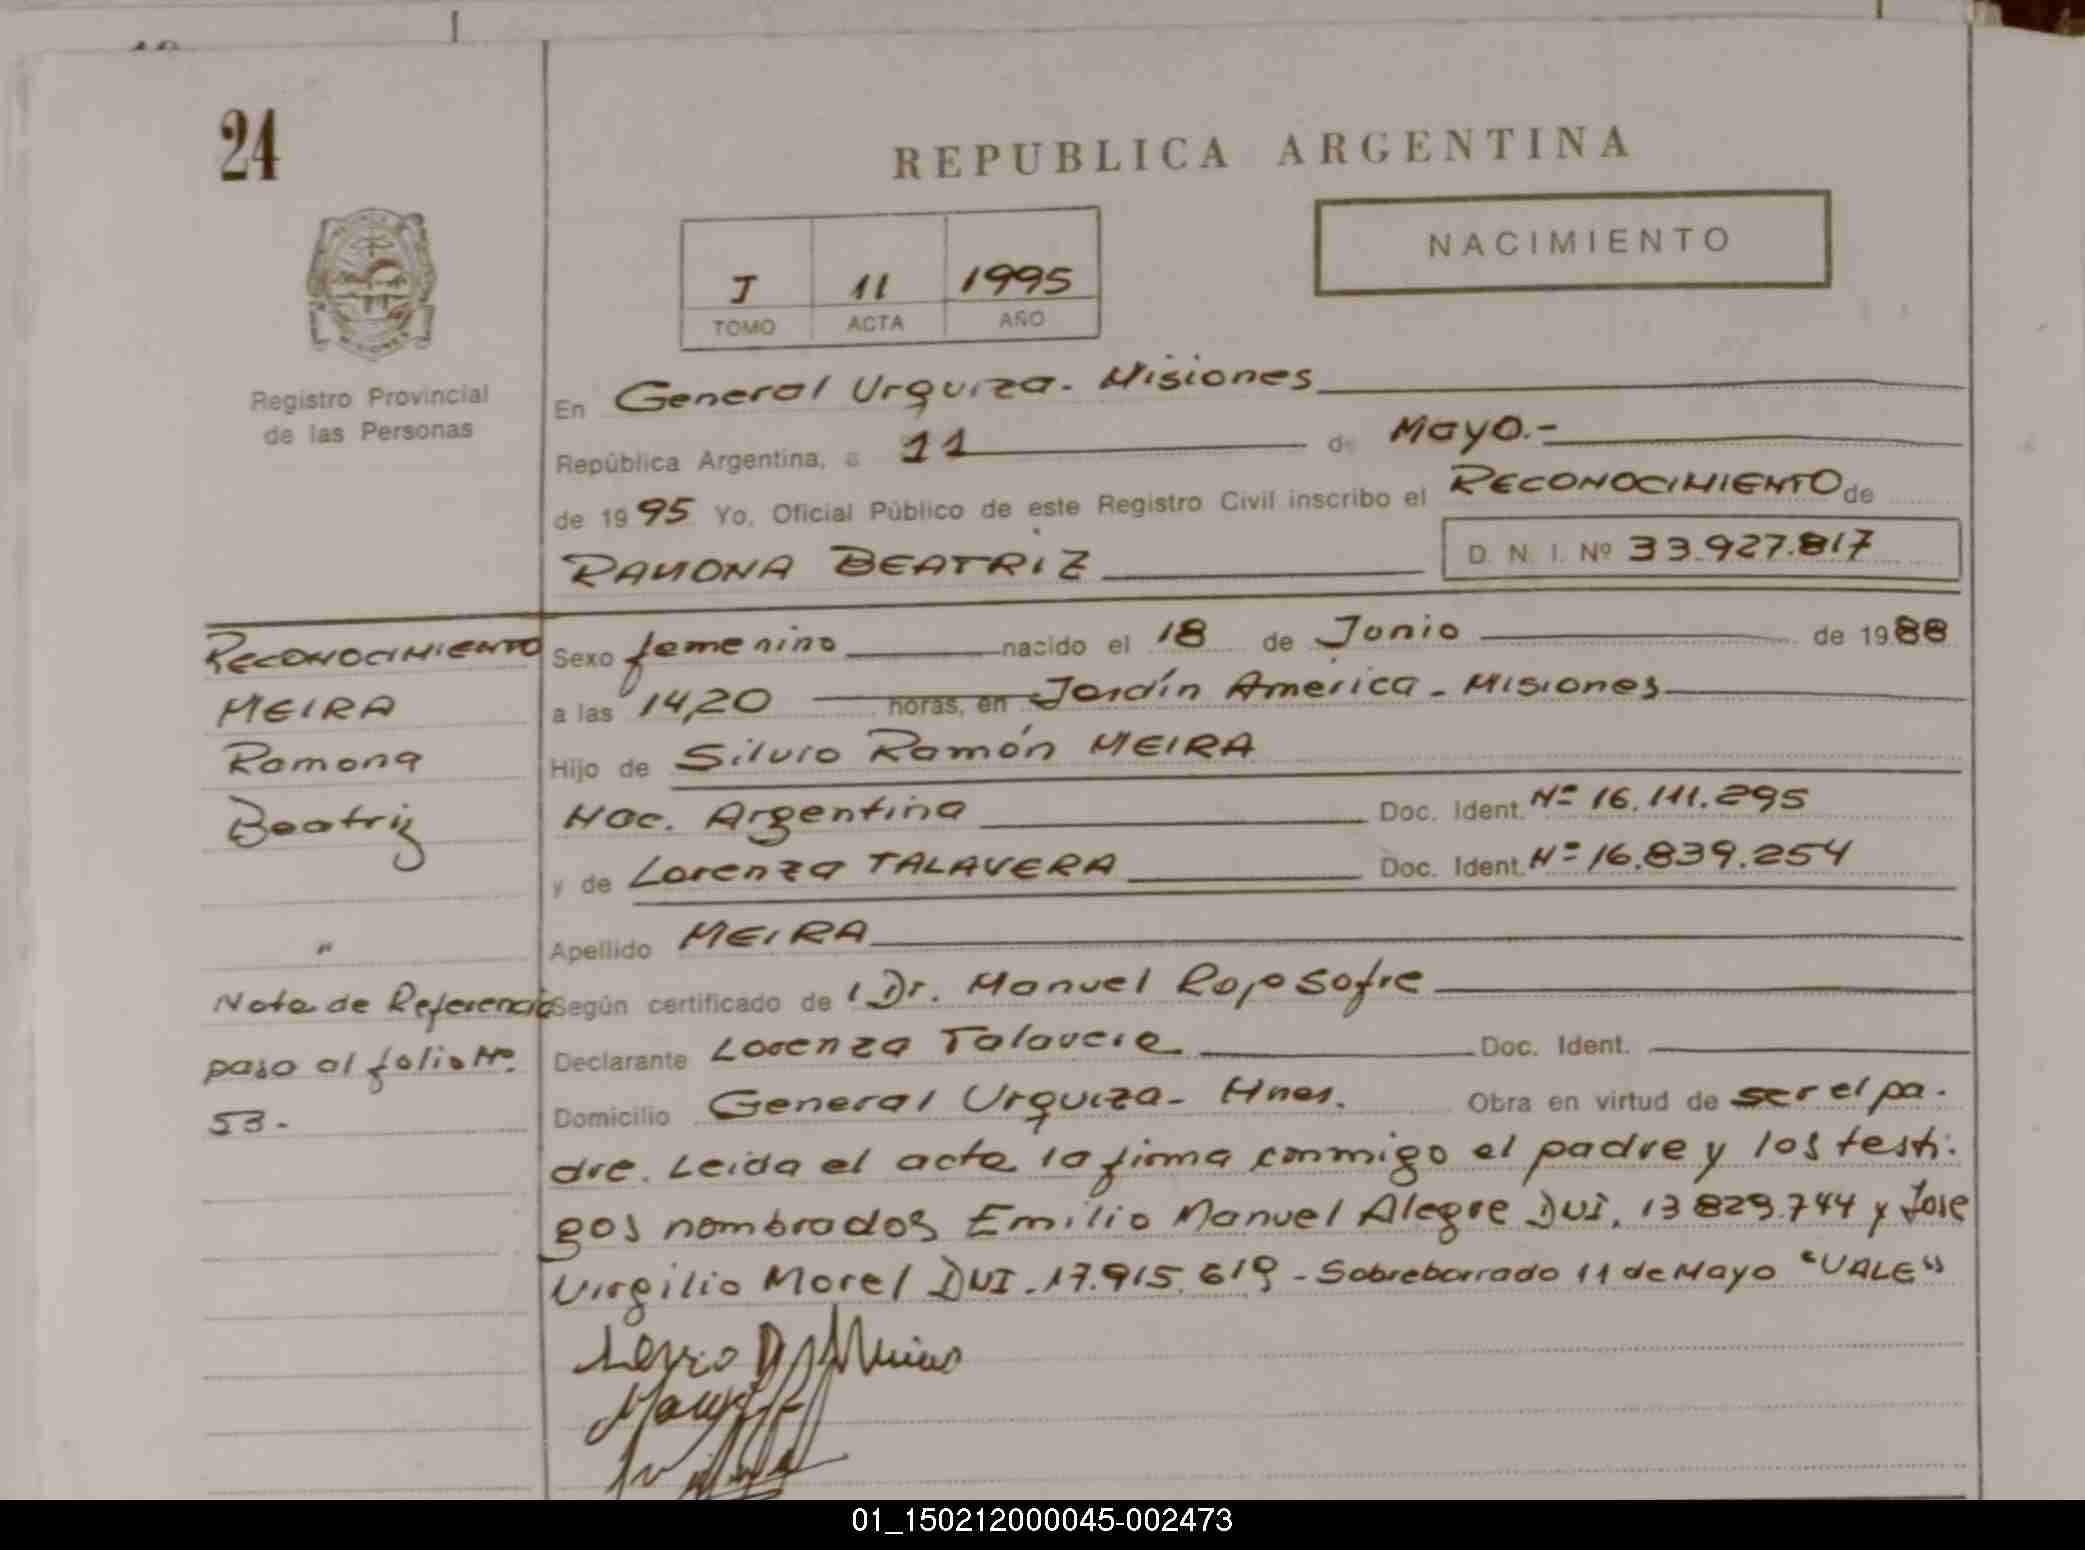 24
REPUBLICA ARGENTINA
NACIMIENTO
I 11 1995
TOMO ACTA AÑO
Registro Provincial
de las Personas
En General Urquiza - Misiones
República Argentina, a 11 de Mayo.-
de 1995 Yo, Oficial Público de este Registro Civil inscribo el RECONOCIMIENTO de
RAMONA BEATRIZ D. N. I. Nº 33.927.817
RECONOCIMIENTO
MEIRA
Ramona
Beatriz
"
Nota de Referencia
paso al folio Nº.
53-
Sexo femenino nacido el 18 de Junio de 1988
a las 14,20 horas, en Jardín América - Misiones
Hijo de Silvio Ramón MEIRA
Nac. Argentina Doc. Ident. Nº 16.111.295
y de Lorenza TALAVERA Doc. Ident. Nº 16.839.254
Apellido MEIRA
Según certificado de Dr. Manuel
Declarante Lorenza Talavera Doc. Ident.
Domicilio General Urquiza - Mnes. Obra en virtud de ser el pa-
dre. Leida el acta la firma conmigo el padre y los testi-
gos nombrados Emilio Manuel Alegre DNI. 13829.744 y Jose
Virgilio Morel DNI. 17.915.619 - Sobreborrado 11 de Mayo "VALE"
01_150212000045-002473